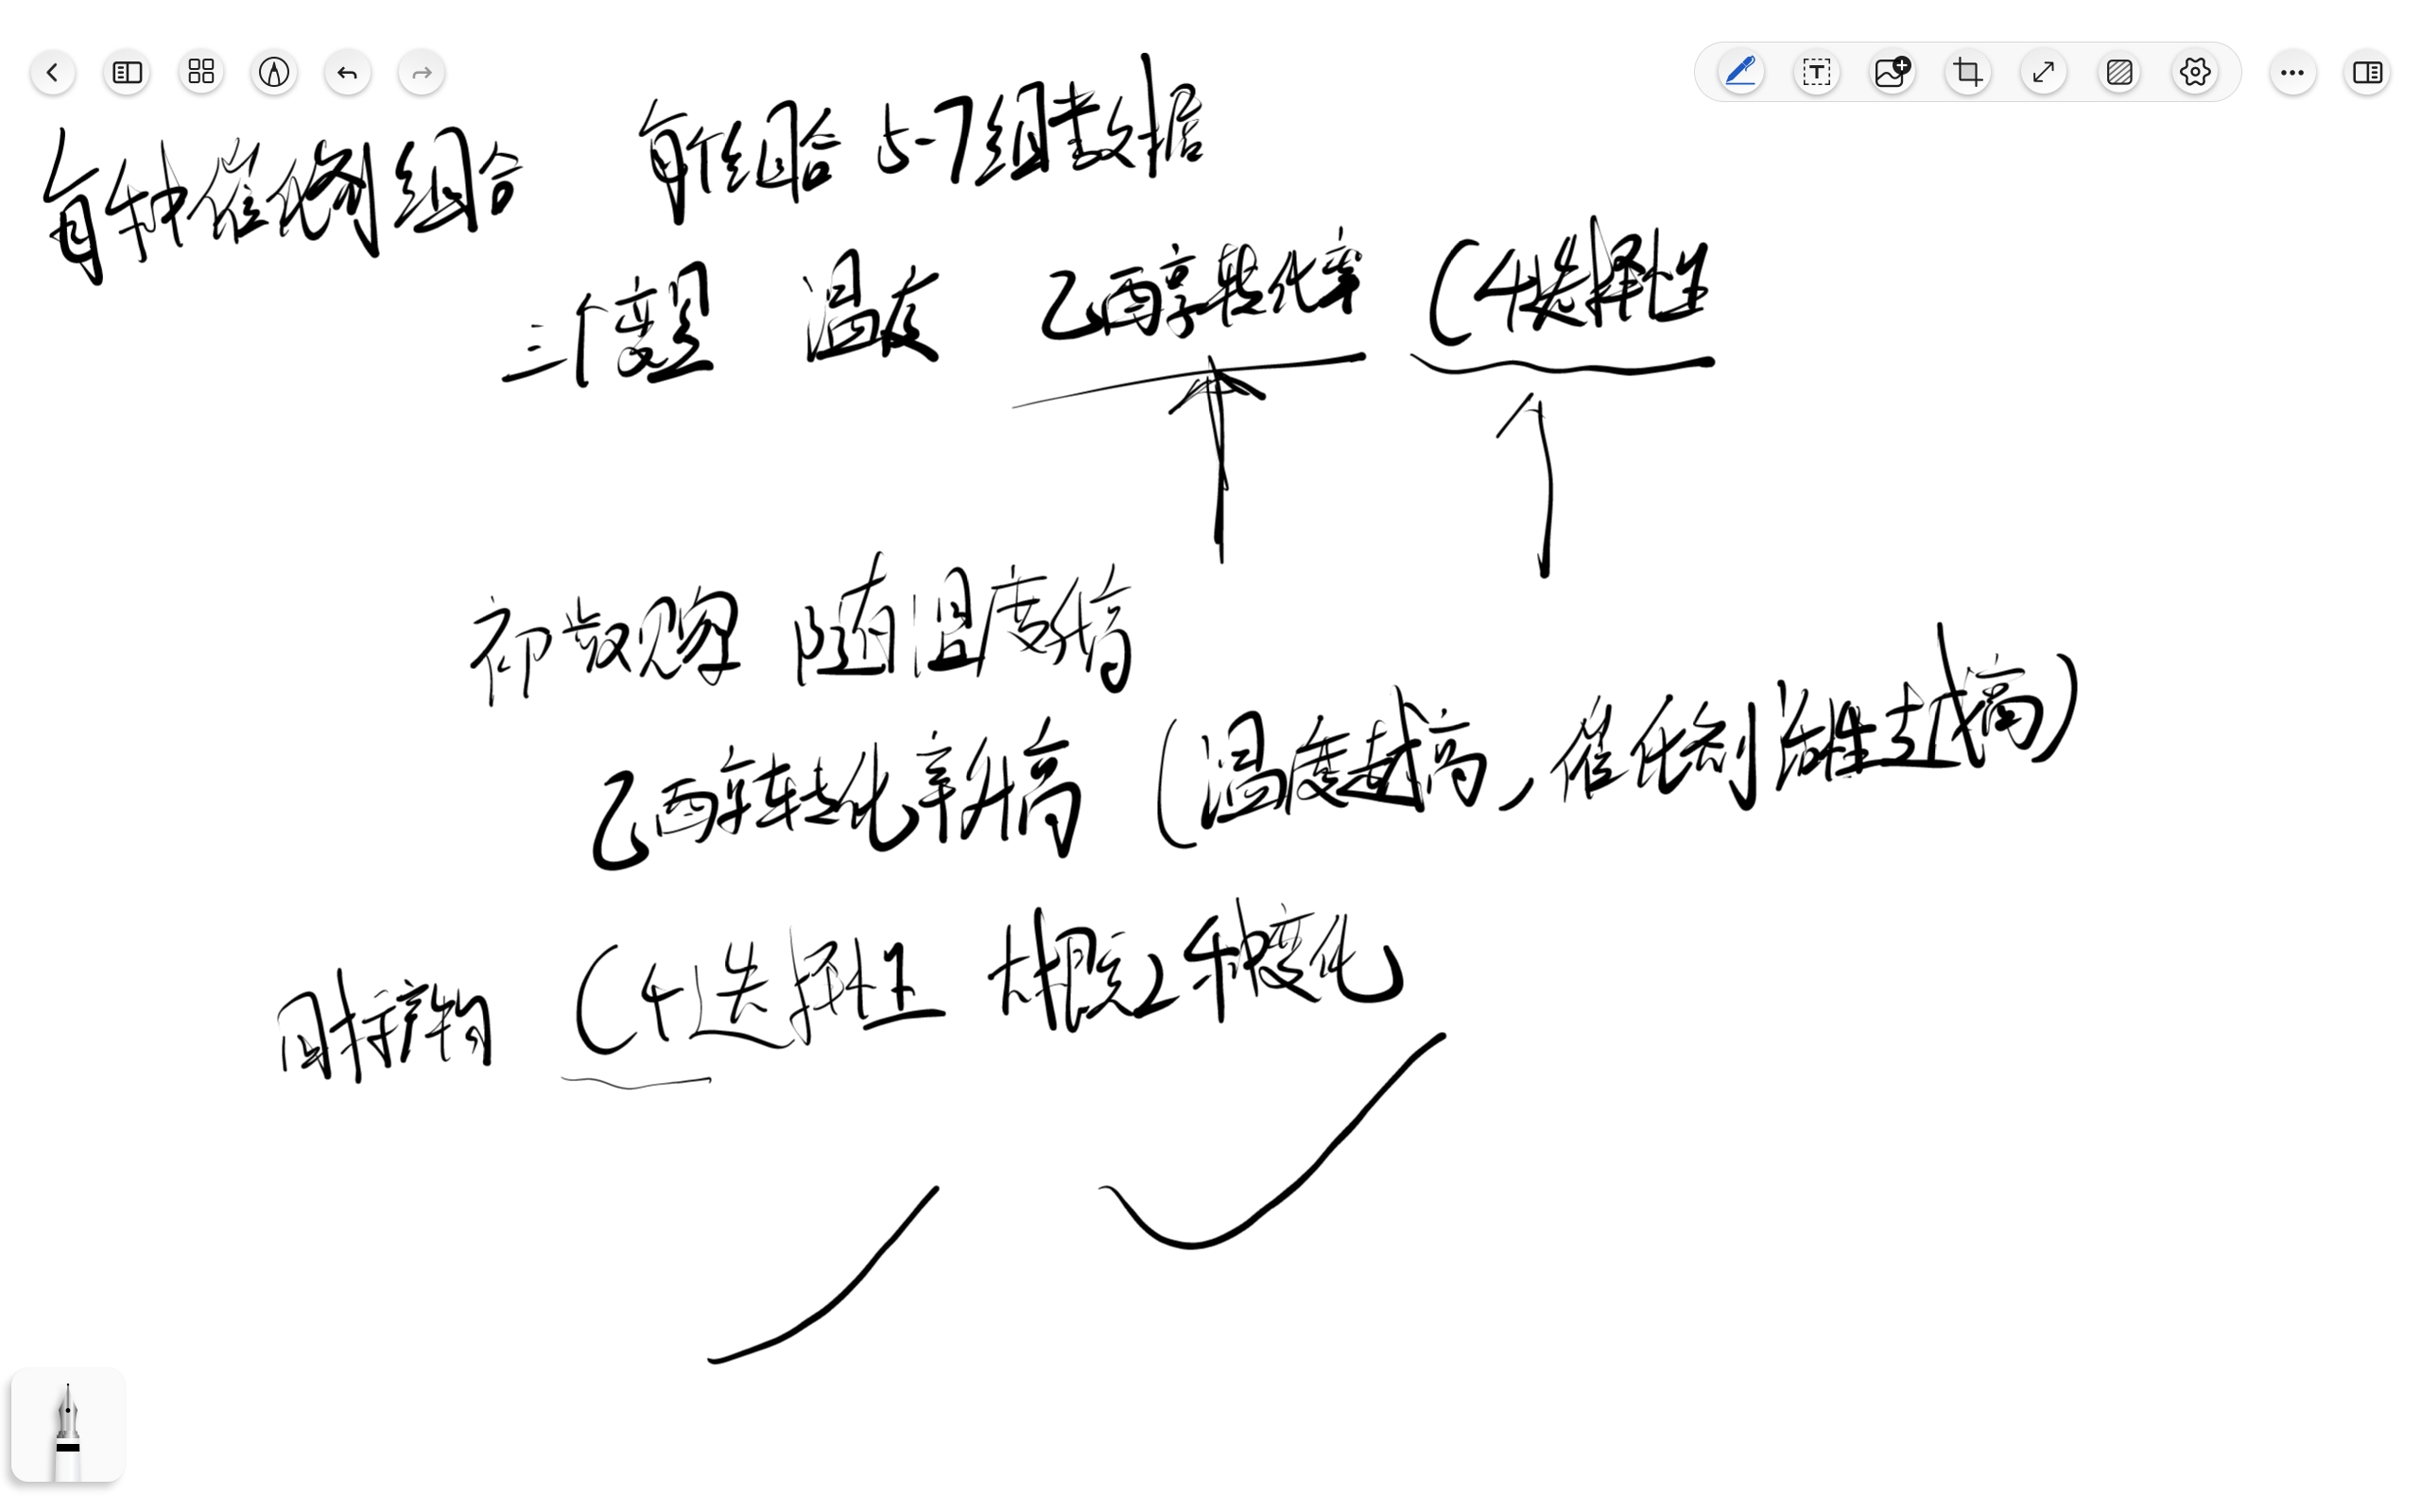 每种催化剂组合 每个组合 5-7组数据
三个变量 温度 乙醇转化率 C4选择性
初步观察 随温度升高
乙醇转化率升高 (温度越高,催化剂活性越高)
附产物 C4选择性 大概2种变化